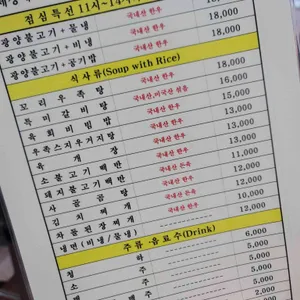 점심 특선 11시~14시
광양불고기+물냉 국내산 한우 18,000
광양불고기+비냉 국내산 한우 18,000
광양불고기+공기밥 국내산 한우
식사류(Soup with Rice)
꼬리우족탕 국내산 한우 18,000
특미갈비탕 국내산,미국산 섞음 16,000
육회비빔밥 국내산 한우 15,000
우족스지우거지탕 국내산 한우 13,000
육개장 국내산 한우 13,000
소불고기백반 국내산 한우 13,000
돼지불고기백반 국내산 돈육 11,000
사골곰탕 국내산 한우 12,000
김치찌개 국내산 돈육 12,000
차돌된장찌개 국내산 한우 10,000
냉면(비냉/물냉) 12,000
주류·음료수(Drink)
청하 6,000
소주 5,000
맥주 5,000
2,000